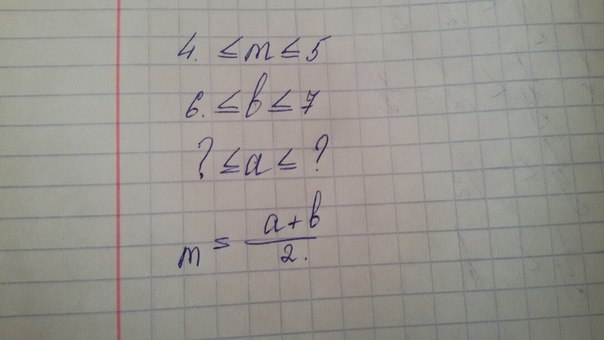 4. ≤ m ≤ 5
6. ≤ b ≤ 7
? ≤ a ≤ ?
m = a+b / 2.